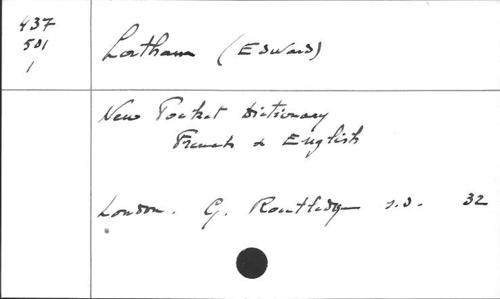 437
501
1
Latham (Edward)
New Pocket Dictionary
French & English
London. G. Routledge s.d. 32